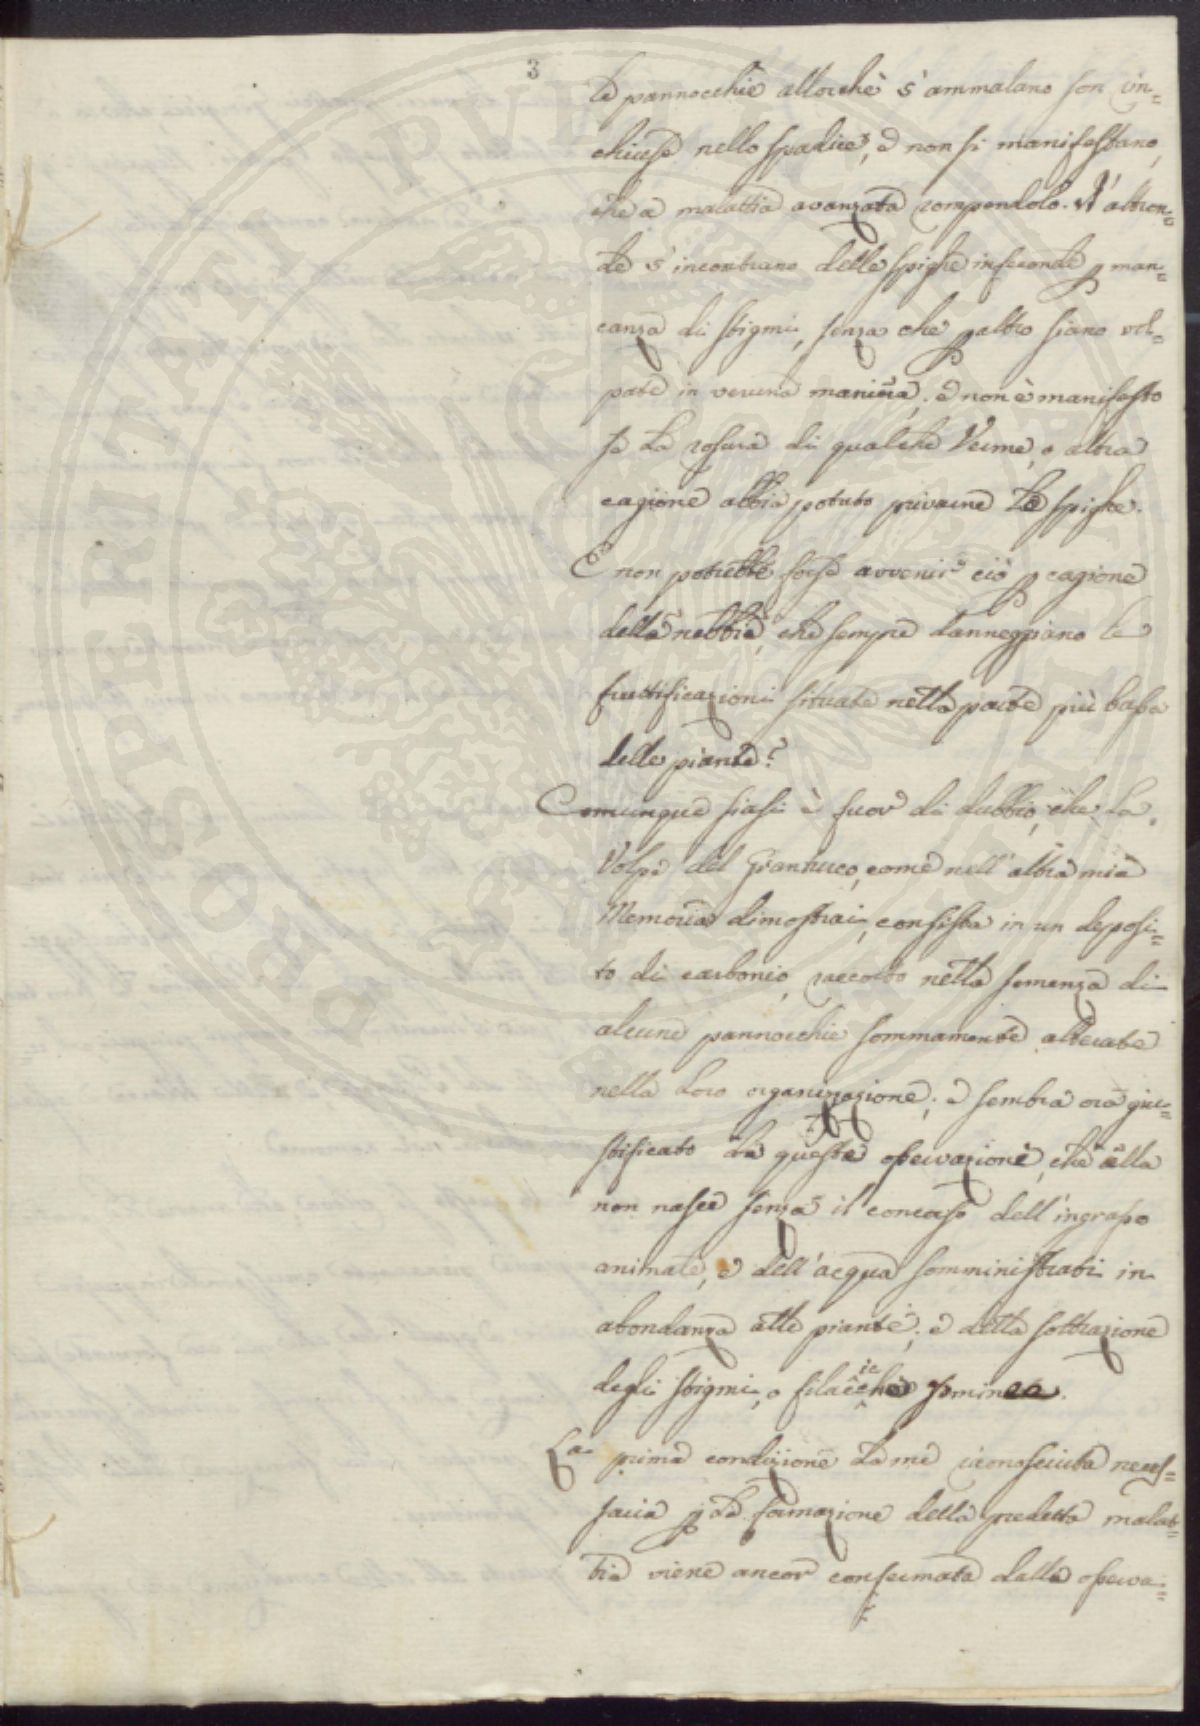 3
Le pannocchie allorchè s'ammalano son in=
chiuse nello spadice, e non si manifestano,
che a malattia avanzata rompendolo. D'altron=
de s'incontrano delle spighe infeconde p man=
canza di stigmi, senza che p altro siano vol=
pate in veruna maniera; e non è manifesto
se la rosura di qualche Verme, o altra
cagione abbia potuto privarne le spighe.
E non potrebbe forse avvenir ciò p cagione
della nebbia, che sempre danneggiano le
fruttificazioni situate nella parte più bassa
delle piante?
Comunque siasi è fuor di dubbio, che la
Volpe del Granturco, come nell'altra mia
Memoria dimostrai, consista in un deposi=
to di carbonio, raccolto nella semenza di
alcune pannocchie sommamente alterate
nella loro organizzazione; e sembra ora giu=
stificato da queste osservazioni, che ella
non nasce senza il concorso dell'ingrasso
animale, e dell'acqua somministrati in
abondanza alle piante; e della sottrazione
degli stigmi, o filacciche
La prima condizione da me riconosciuta neces=
saria p la formazione della predetta malat=
tia viene ancor confermata dalla osserva=
PROSPERITATI PVBLICAE